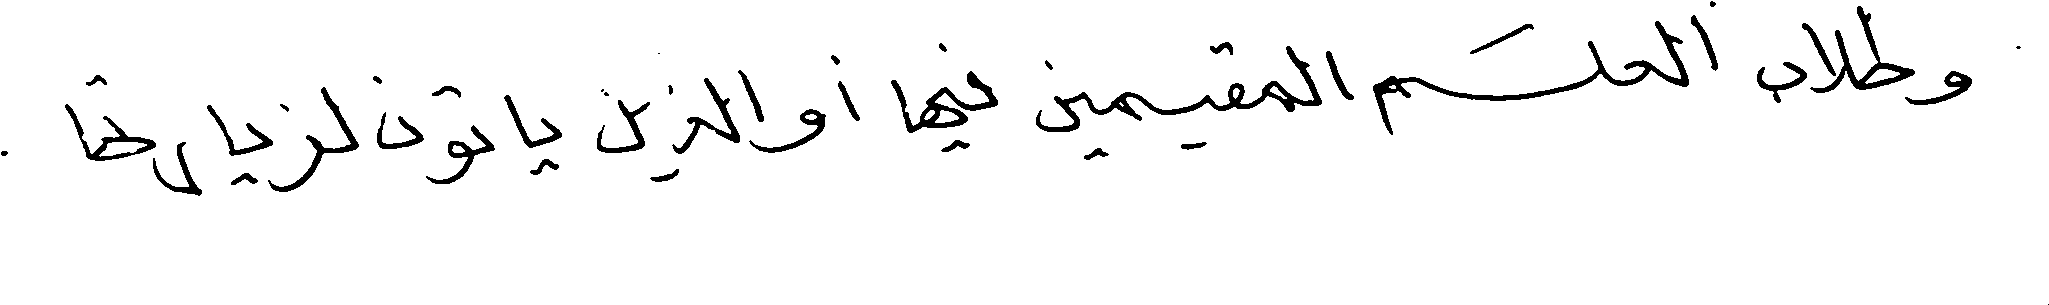 وطلاب العلم المقيمين فيها أو الذين يأتون لزيارتها .